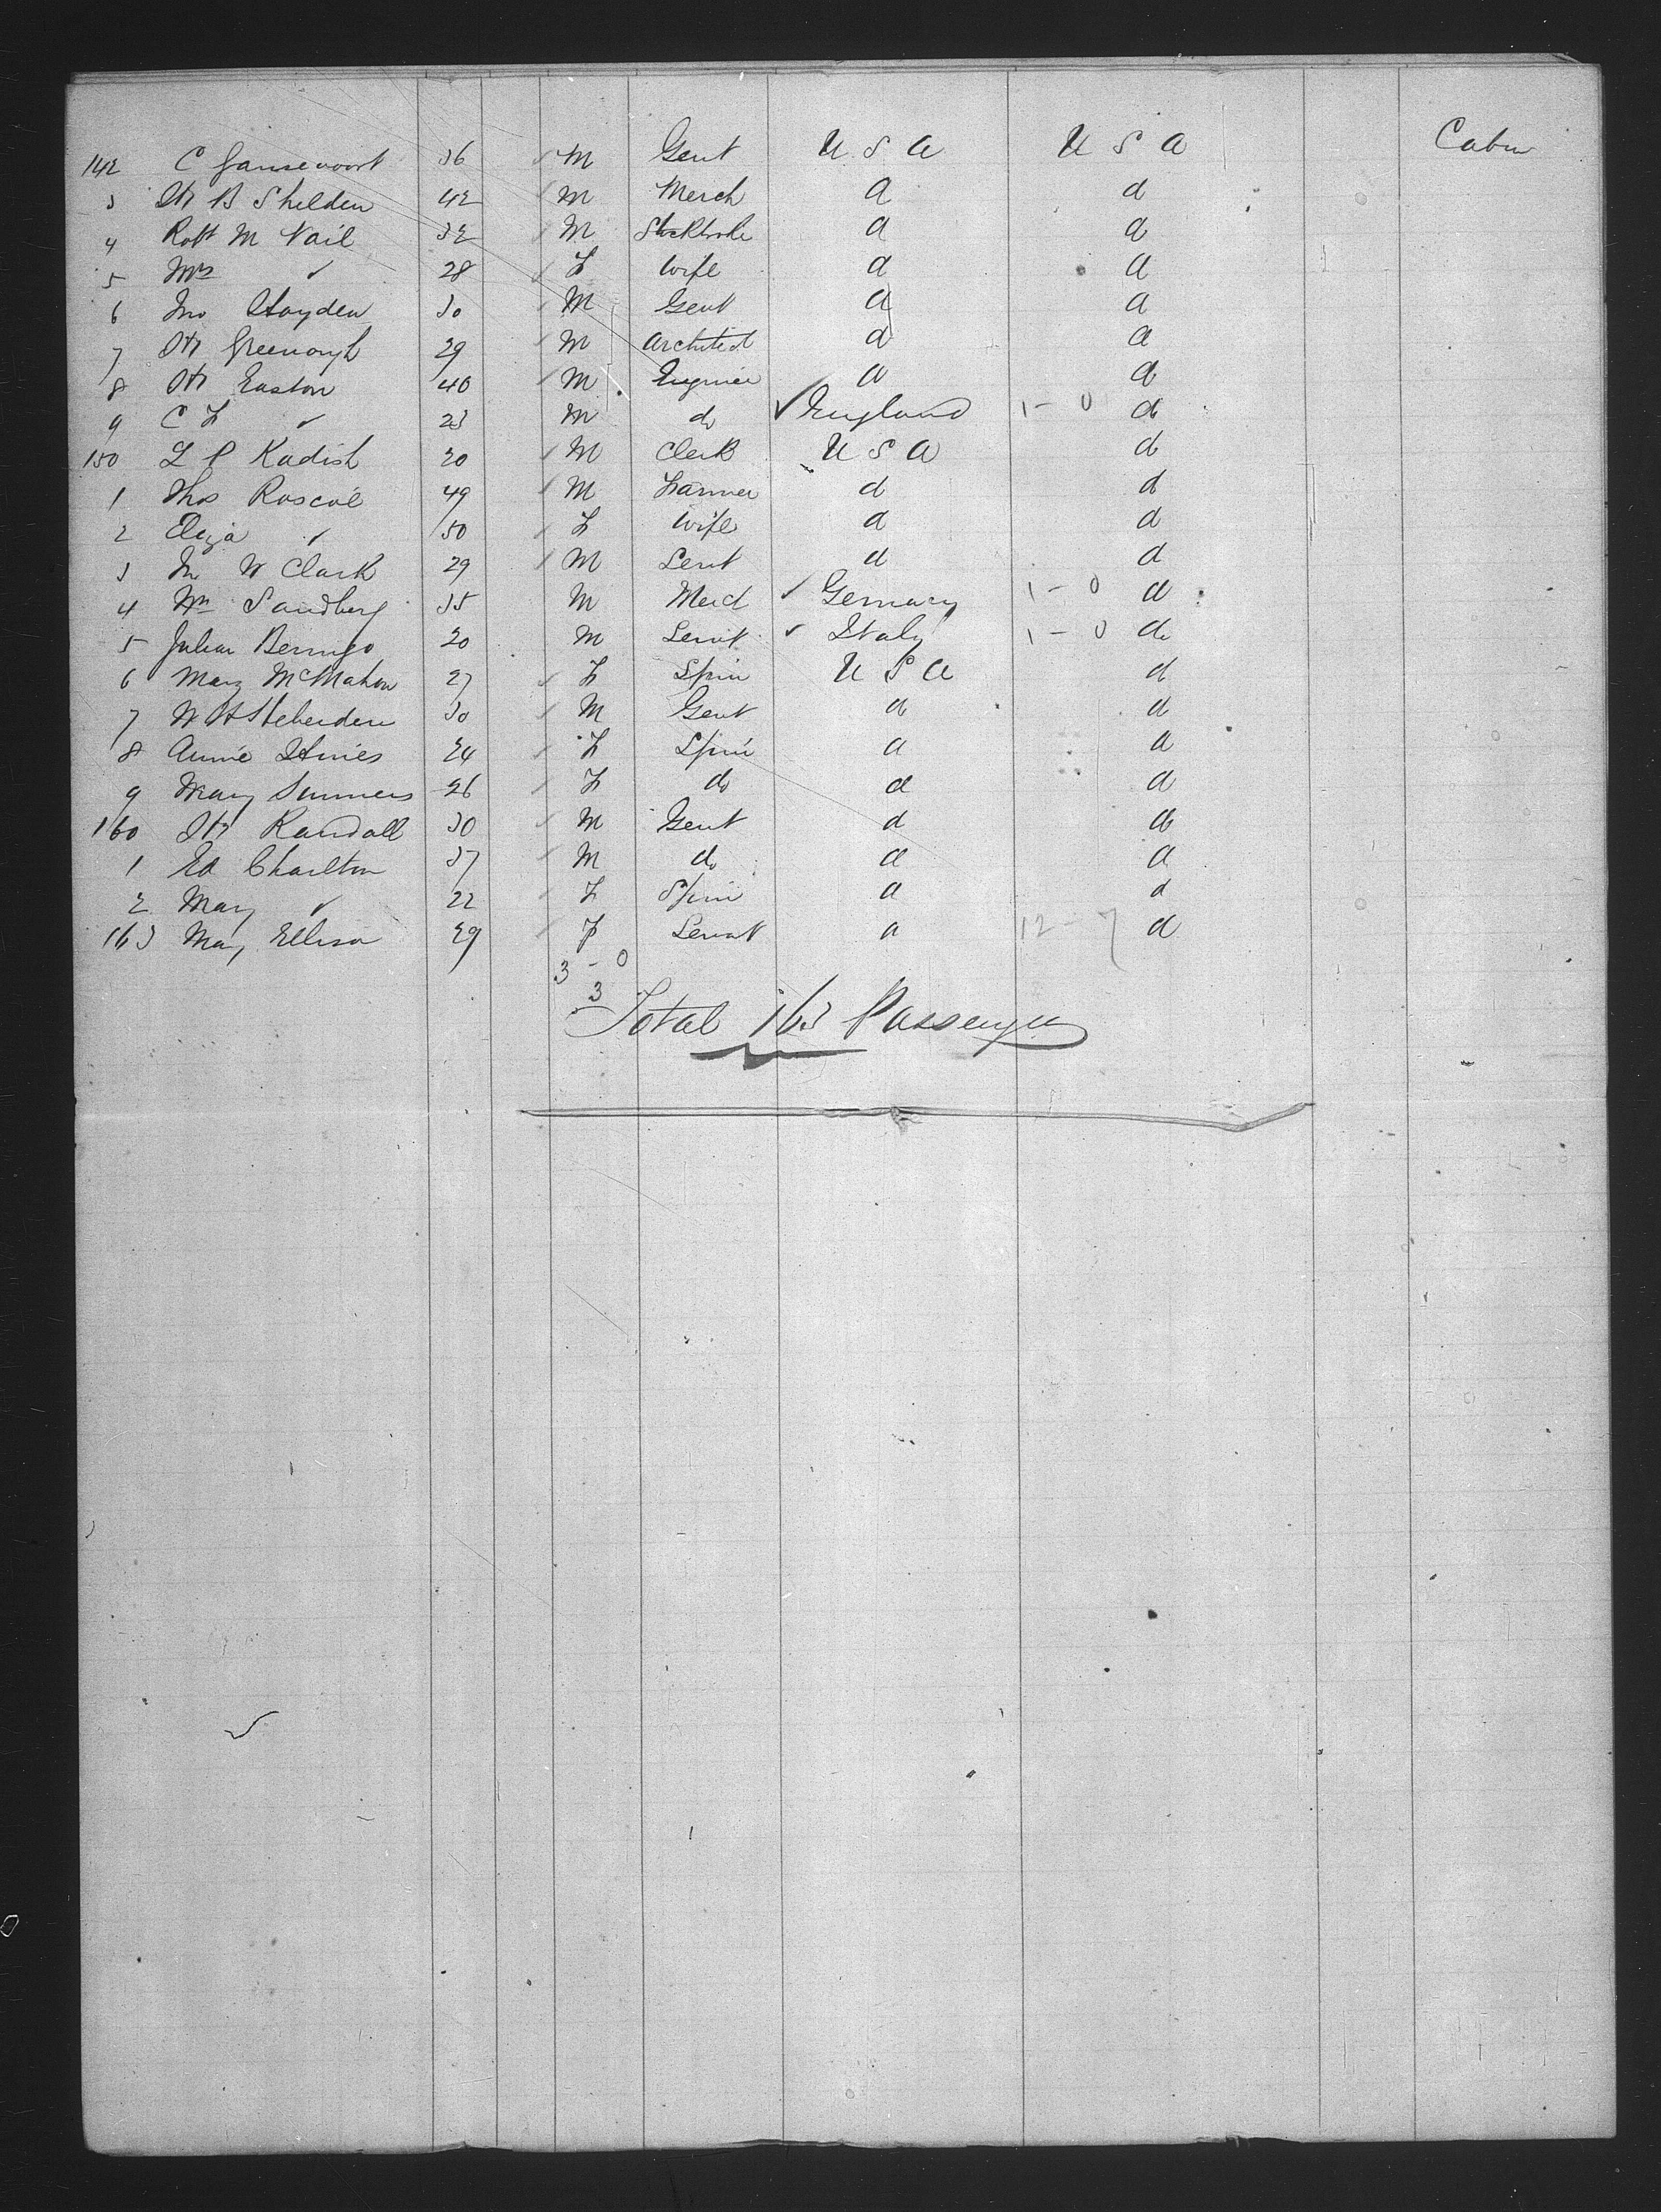 142 C Gansevoort 36 M Gent U S A U S A Cabin
3 B Shelden 42 M Merch d d
4 Robt M Vail 32 M Stockbroke d d
5 Mrs " 28 F Wife d d
6 Jno Hayden 30 M Gent d d
7 Greenough 29 M Architect d d
8 Easton 40 M Engineer d d
9 C F " 23 M do England 1 - 0 do
150 L P Kadish 20 M Clerk U S A d
1 Thos Roscoe 49 M Farmer d d
2 Eliza " 50 F Wife d d
3 W Clark 29 M Servt d d
4 Wm Sandberg 35 M Germany 1 - 0 d
5 20 M Servt Italy 1 - 0 do
6 Mary McMahon 27 F Spin U S A d
7 30 M Gent d d
8 Annie 24 F Spin d d
9 Mary Summers 26 F do d d
160 Randall 30 M Gent d d
1 Ed Charlton 37 M do d d
2 Mary " 22 F Spin d d
163 Mary Ellison 29 F Servt d 12 - 7 d
3 - 0
3
Total 163 Passengers